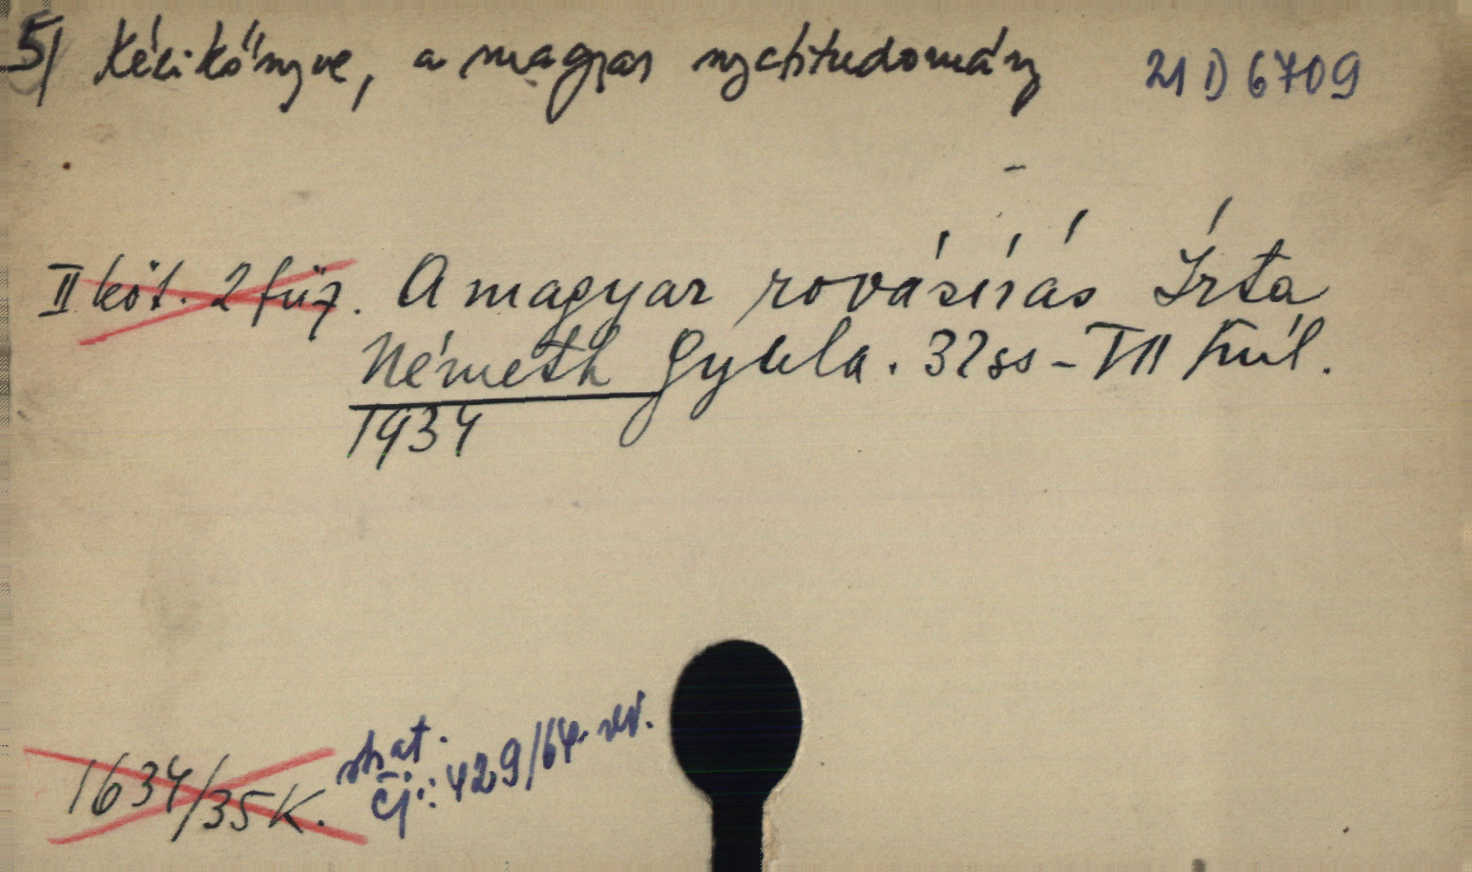 5/ Kézikönyve, a magyar nyelvtudomány 21 D 6709
II köt. 2 füz. A magyar rovásírás Írta
Németh Gyula. 32 ss - TII
1934
1634/35 K.
čj.: 429/64